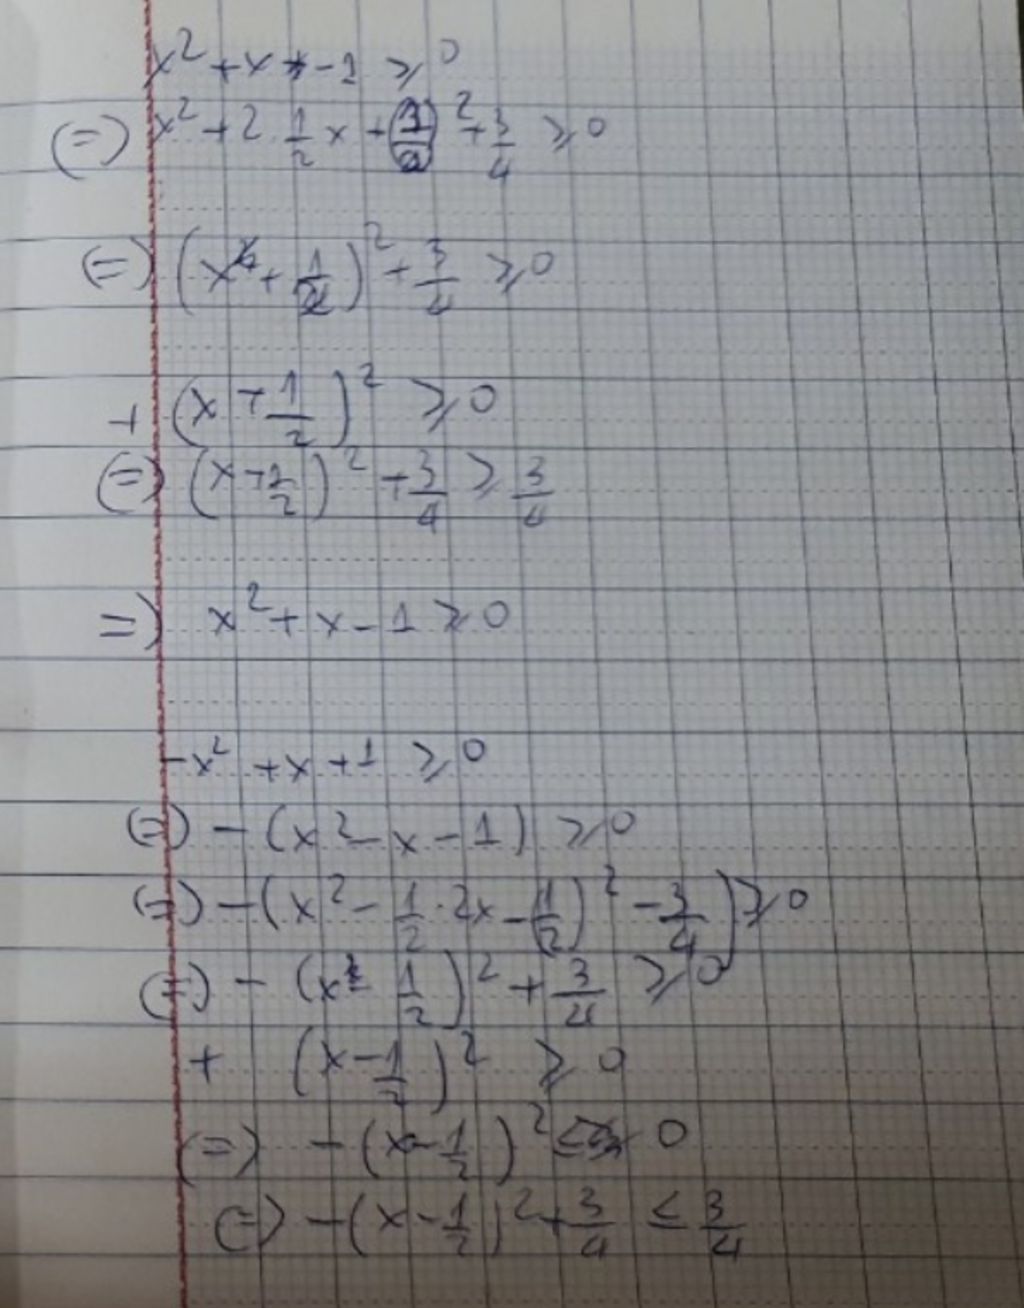 x² + x - 1 ⩾ 0
(=) x² + 2 . 1/2 x + (1/2)² + 3/4 ⩾ 0
(=) (x + 1/2)² + 3/4 ⩾ 0
+ (x + 1/2)² ⩾ 0
(=) (x + 1/2)² + 3/4 ⩾ 3/4
=) x² + x - 1 ⩾ 0
-x² + x + 1 ⩾ 0
(=) - (x² - x - 1) ⩾ 0
(=) - (x² - 1/2 . 2x - (1/2)² - 3/4) ⩾ 0
(=) - (x - 1/2)² + 3/4 ⩾ 0
+ (x - 1/2)² ⩾ 0
(=) - (x - 1/2)² ≤ 0
(=) - (x - 1/2)² + 3/4 ≤ 3/4